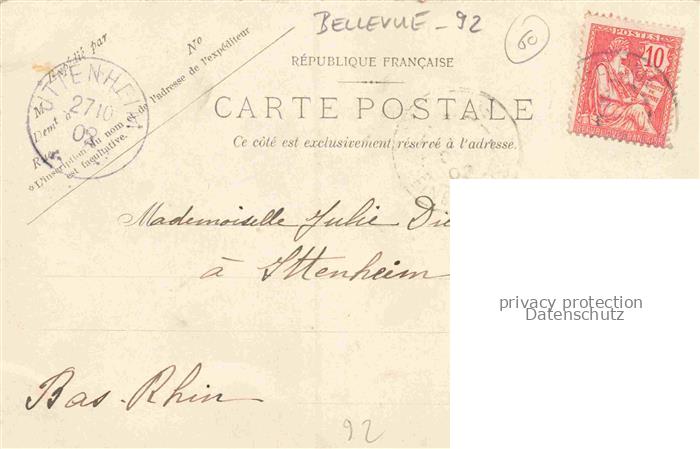 BELLEVUE - 92
60
Expédié par
No
M
Demt à
Rue
L'inscription du nom et de l'adresse de l'expéditeur
est facultative.
ITTENHEIM
27 10
02
RÉPUBLIQUE FRANÇAISE
CARTE POSTALE
Ce côté est exclusivement réservé à l'adresse.
POSTES
10
REPUBLIQUE FRANÇAISE
Mademoiselle Julie Die
à Ittenheim
Bas-Rhin
92
privacy protection
Datenschutz